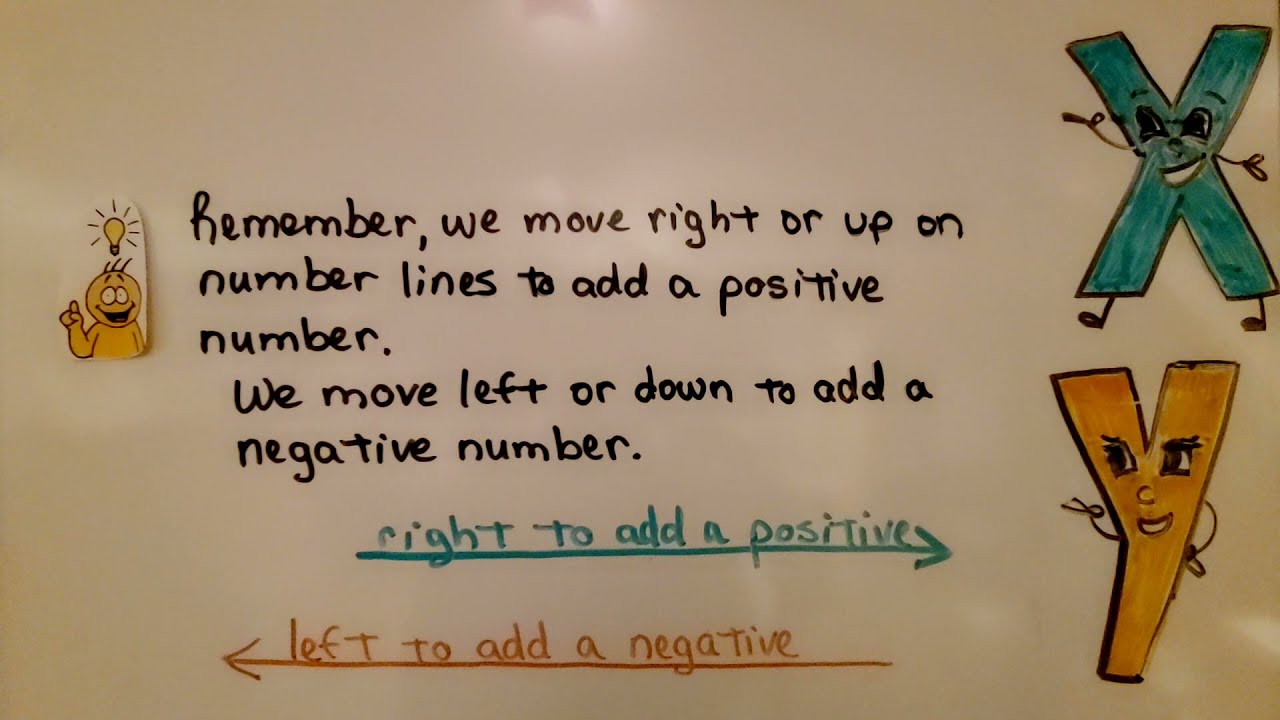 Remember, we move right or up on
number lines to add a positive
number.
We move left or down to add a
negative number.
right to add a positive
left to add a negative
X
Y